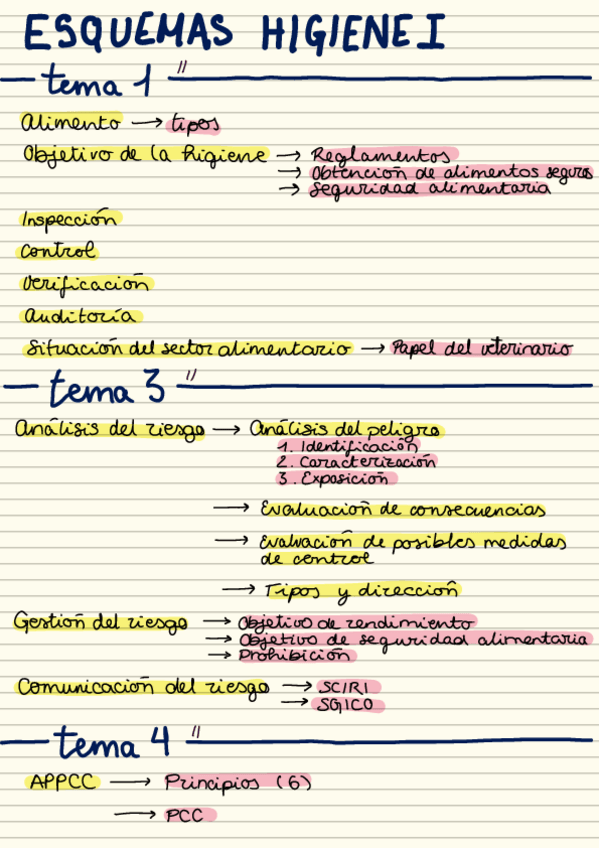 ESQUEMAS HIGIENE I
tema 1
Alimento → tipos
Objetivo de la higiene → Reglamentos
→ Obtención de alimentos seguros
→ Seguridad alimentaria
Inspección
Control
Verificación
Auditoría
Situación del sector alimentario → Papel del veterinario
tema 3
Análisis del riesgo → Análisis del peligro
1. Identificación
2. Caracterización
3. Exposición
→ Evaluación de consecuencias
→ Evaluación de posibles medidas
de control
→ Tipos y dirección
Gestión del riesgo → Objetivo de rendimiento
→ Objetivo de seguridad alimentaria
→ Prohibición
Comunicación del riesgo → SCIRI
→ SGICO
tema 4
APPCC → Principios (6)
→ PCC